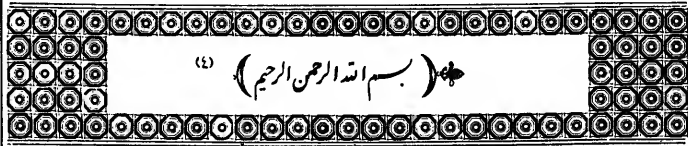 ﴿ بسم الله الرحمن الرحيم ﴾ (٤)